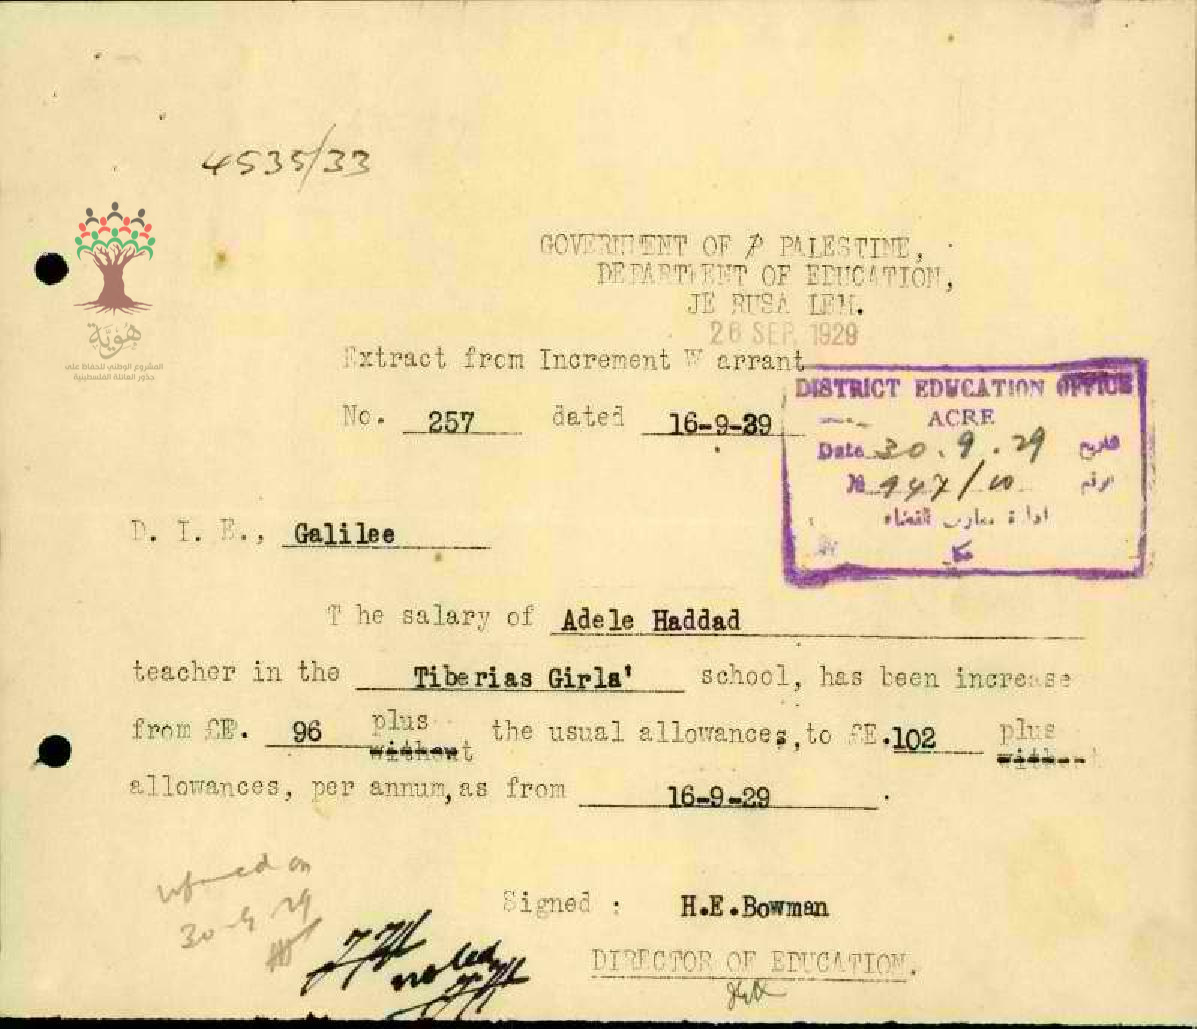 4535/33
GOVERNMENT OF P PALESTINE,
DEPARTMENT OF EDUCATION,
JE RUSA LEM.
26 SEP. 1929
Extract from Increment W arrant
No. 257 dated 16-9-29
DISTRICT EDUCATION OFFICE
ACRE
Date 30.9.29 تاريخ
№ 947/10 الرقم
ادارة معارف القضاء
عكا
هُوِيَّة
المشروع الوطني للحفاظ على
جذور العائلة الفلسطينية
D. I. E., Galilee
T he salary of Adele Haddad
teacher in the Tiberias Girls' school, has been increase
from £E. 96 plus without the usual allowances, to £E.102 plus without
allowances, per annum, as from 16-9-29.
informed on
30-9-29
noted
Signed : H.E.Bowman
DIRECTOR OF EDUCATION.